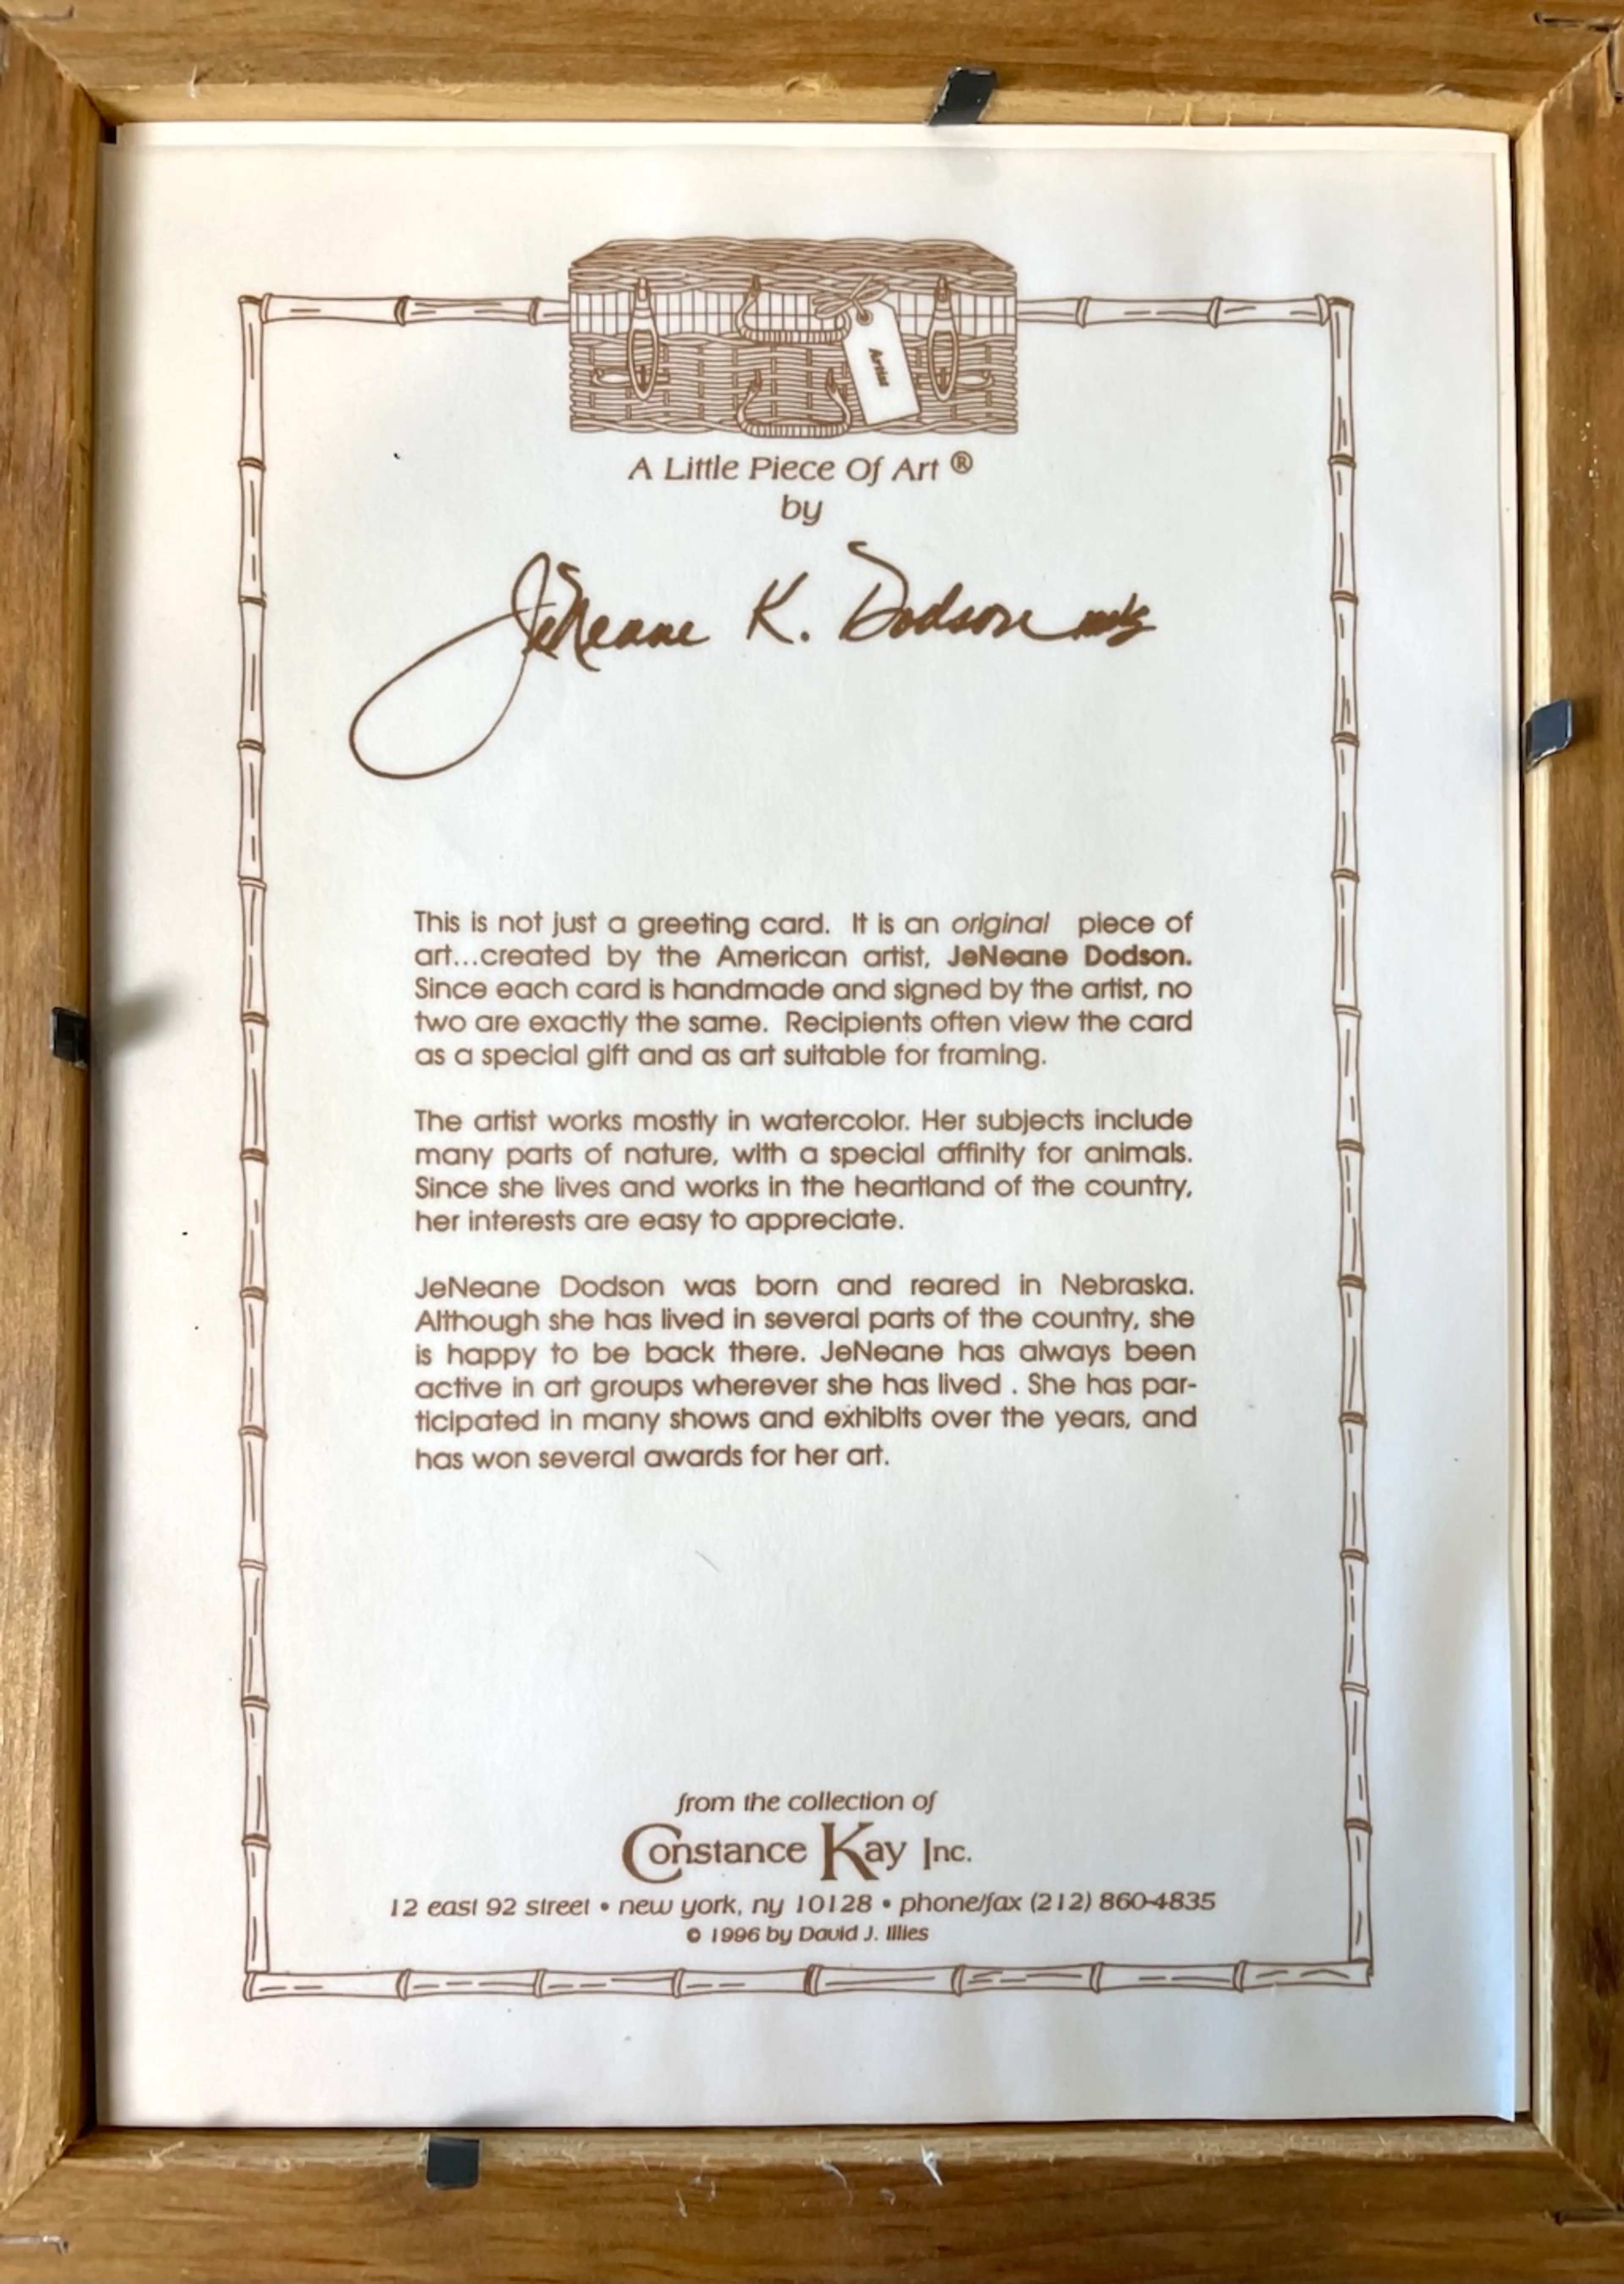 Artist
A Little Piece Of Art ®
by
JeNeane K. Dodson
This is not just a greeting card. It is an original piece of
art...created by the American artist, JeNeane Dodson.
Since each card is handmade and signed by the artist, no
two are exactly the same. Recipients often view the card
as a special gift and as art suitable for framing.
The artist works mostly in watercolor. Her subjects include
many parts of nature, with a special affinity for animals.
Since she lives and works in the heartland of the country,
her interests are easy to appreciate.
JeNeane Dodson was born and reared in Nebraska.
Although she has lived in several parts of the country, she
is happy to be back there. JeNeane has always been
active in art groups wherever she has lived . She has par-
ticipated in many shows and exhibits over the years, and
has won several awards for her art.
from the collection of
Constance Kay Inc.
12 east 92 street • new york, ny 10128 • phone/fax (212) 860-4835
© 1996 by David J. Illies